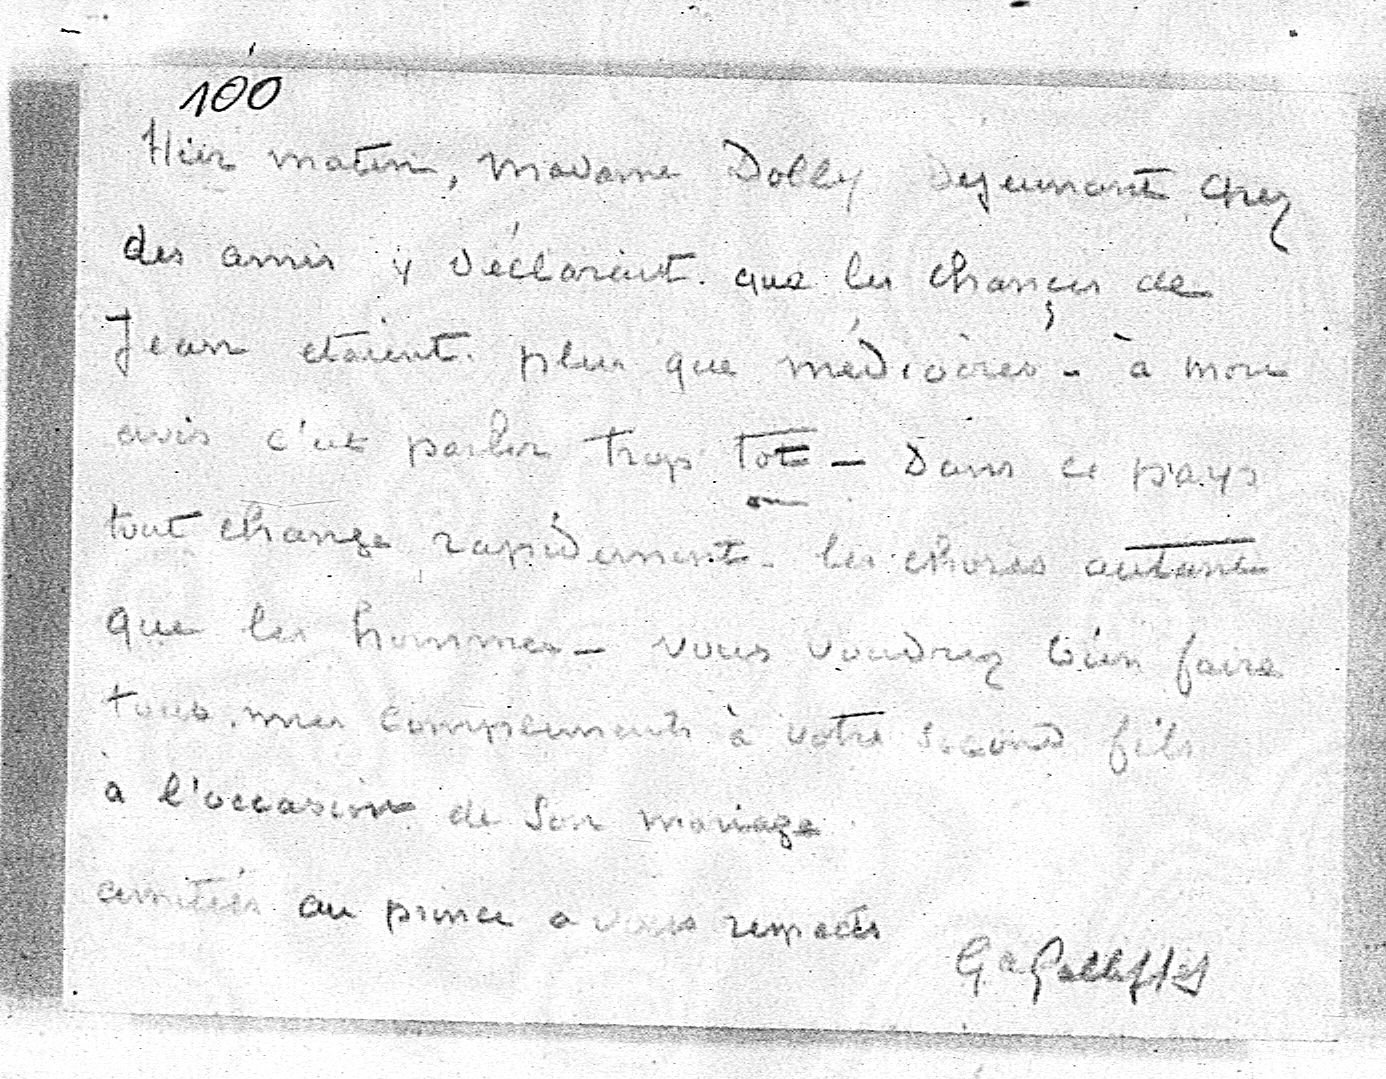 100
Hier matin, Madame Dolly dejeunant chez
des amis y déclarait que les chances de
Jean etaient plus que médiocres - à mon
avis c'est parler trop tot - Dans ce pays
tout change rapidement - les choses autant
que les hommes - vous voudrez bien faire
tous mes compliments à votre second fils
à l'occasion de son mariage
amitiés au prince a vous respects
Ga Galliffet